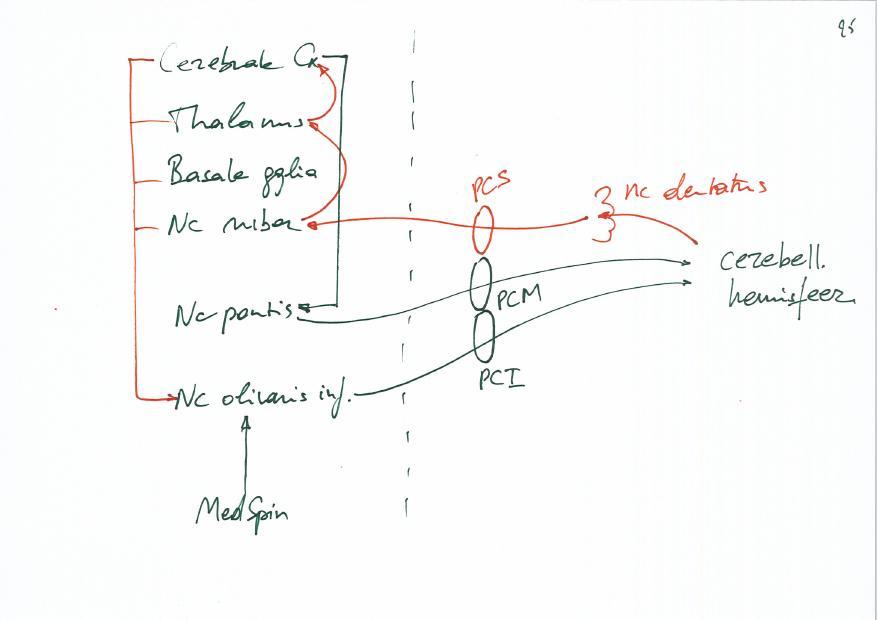 95
Cerebrale Cx
Thalamus
Basale gglia
PCS
nc dentatus
Nc ruber
cerebell.
hemisfeer
PCM
Nc pontis
PCI
Nc olivaris inf.
Med Spin